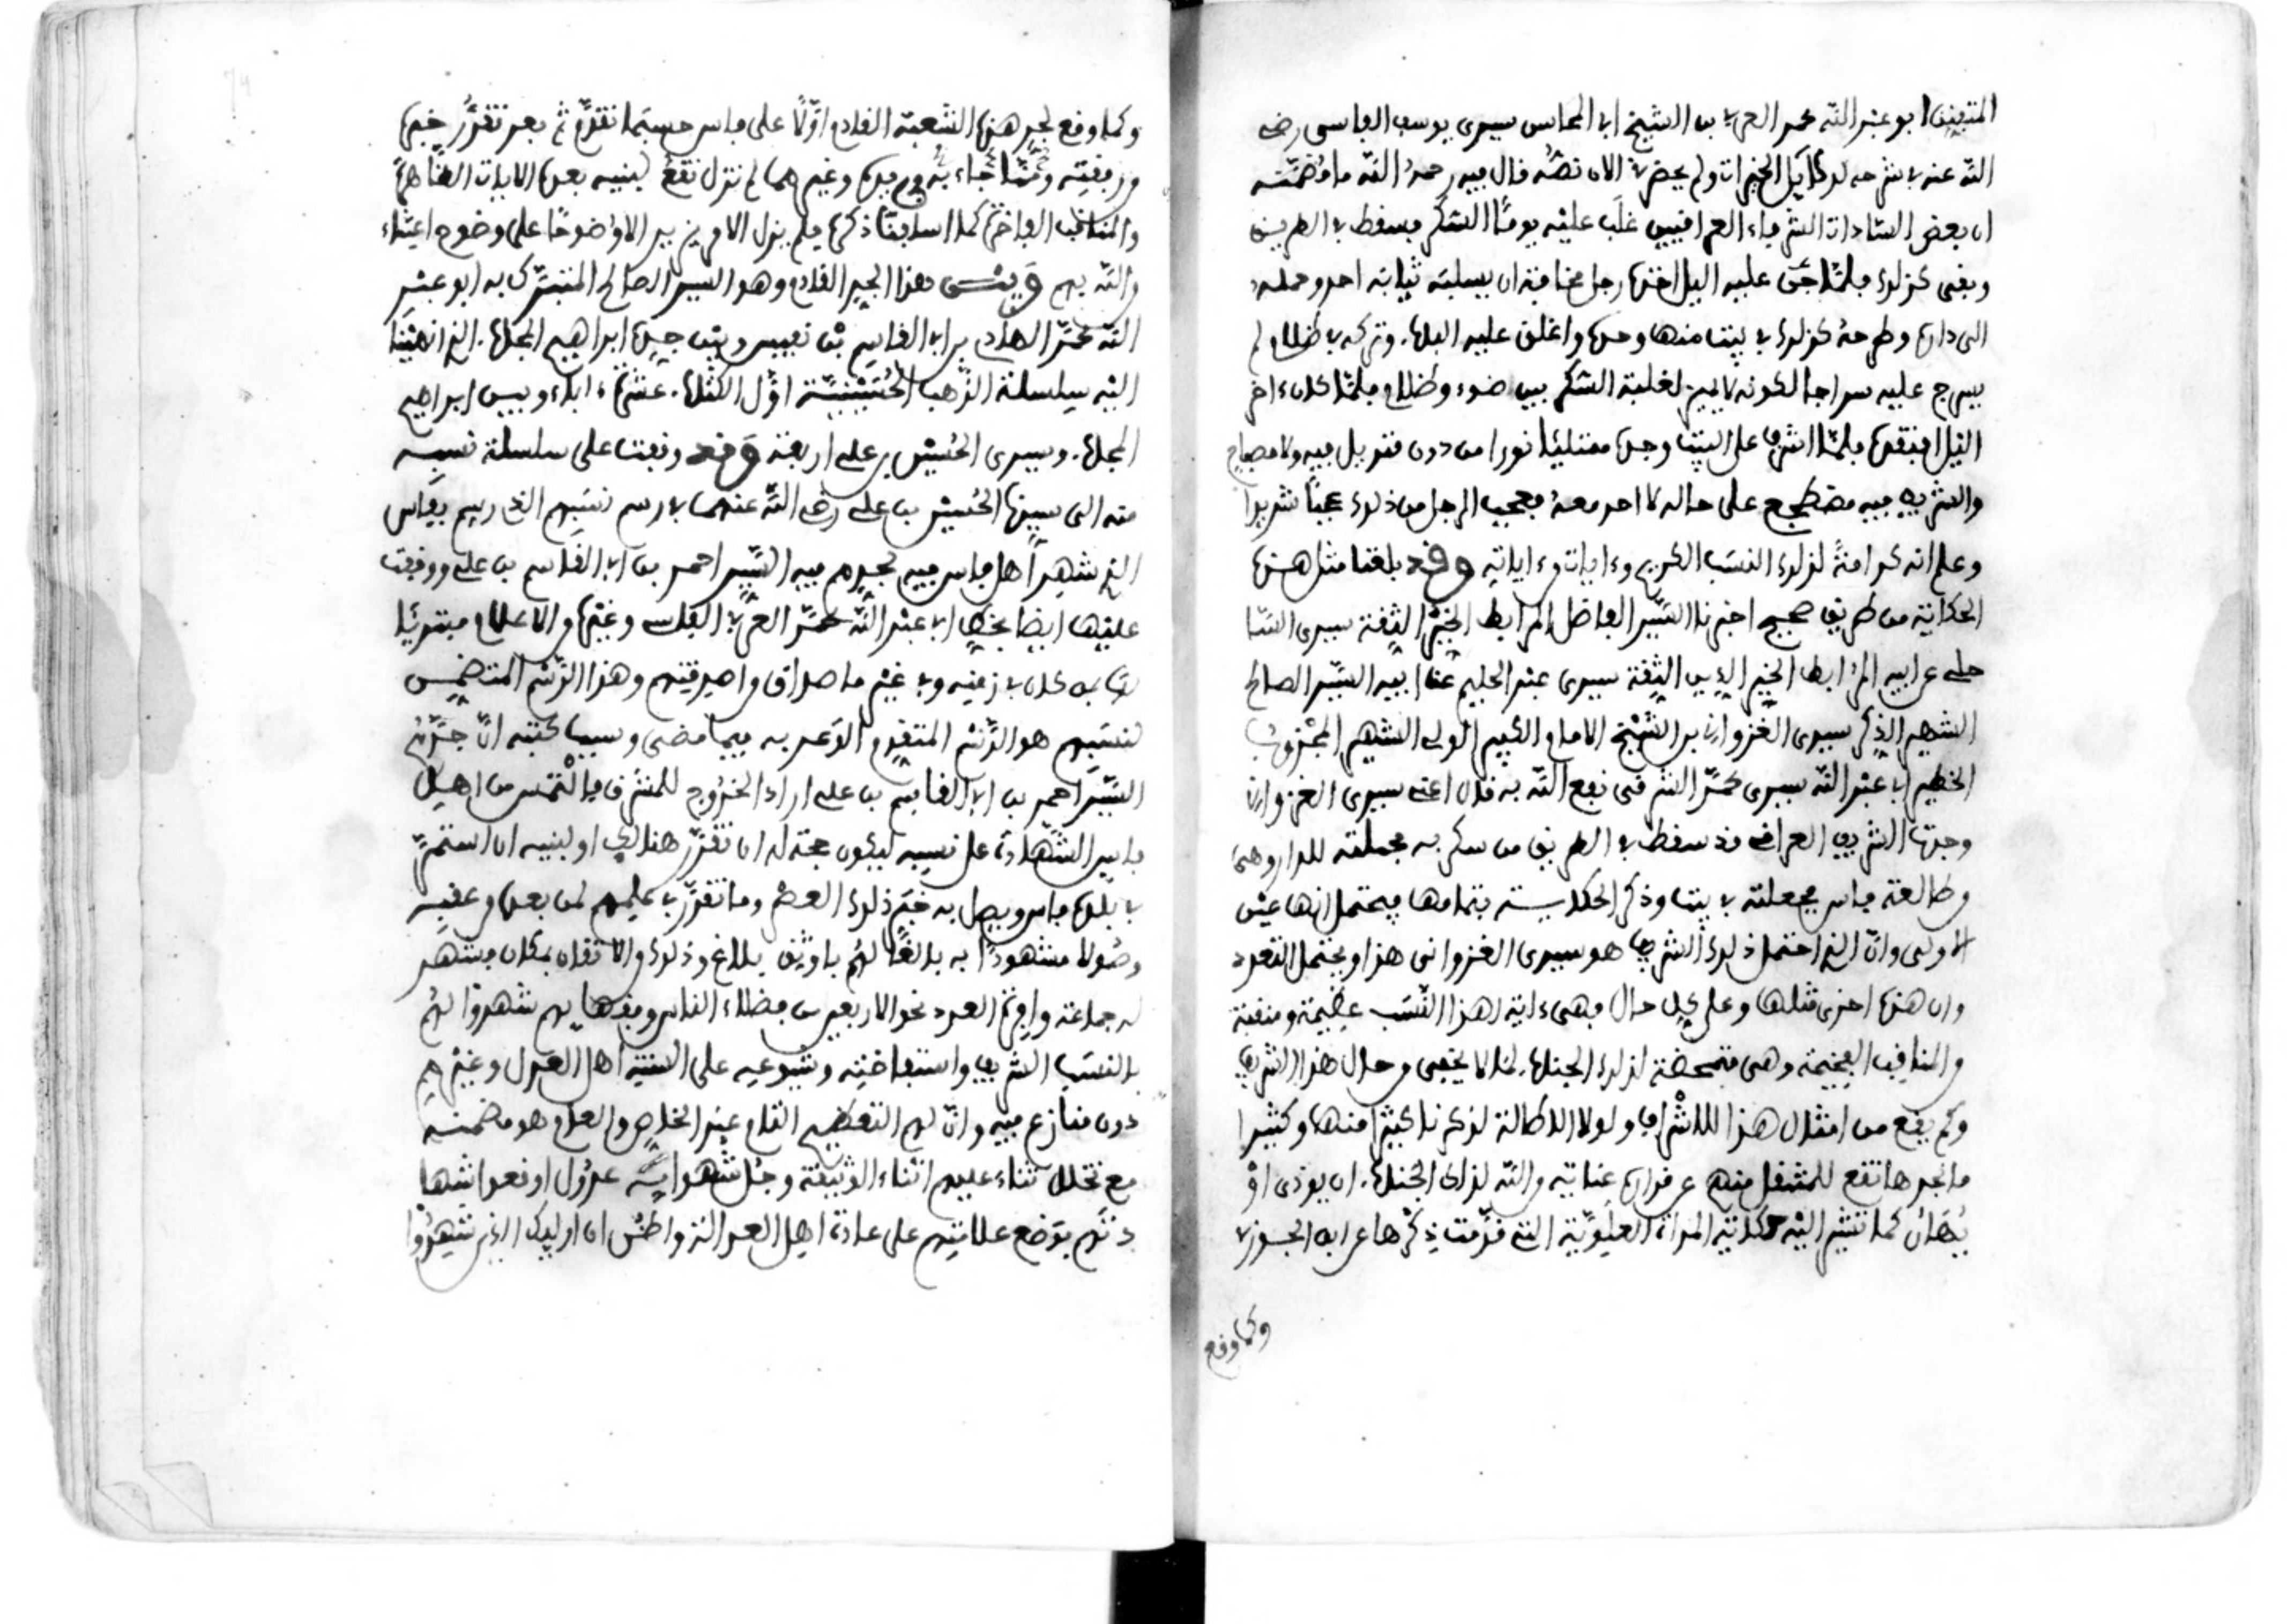 المتفنن ابو عبد الله محمد العربي بن الشيخ ابي المحاسن سيدي يوسف الفاسي رضي
الله عنه في شرحه لدلائل الخيرات ولم يحضرني الان نصه قال فيه رحمه الله ما مضمنه
ان بعض السادات الشرفاء العراقيين غلب عليه يوما السكر فسقط في الطريق
وبقي كذلك فلما جن عليه اليل اخذه رجل مخافة ان يسلبه ثيابه احد وحمله
الى داره وطرحه كذلك في بيت منها وحده واغلق عليه الباب وتركه في ظلام لم
يسرج عليه سراجا لكونه لا يميز لغلبة السكر بين ضوء وظلام فلما كان ءاخر
اليل افتقده فلما اشرف على البيت وجده ممتلئا نورا من دون قنديل فيه ولا مصباح
والشريف فيه مضطجع على حاله لا احد معه فعجب الرجل من ذلك عجبا شديدا
وعلم انه كرامة لذلك النسب الكريم وءاية من ءاياته وقد بلغنا مثل هذه
الحكاية من طريق صحيح اخبرنا السيد الفاضل المرابط الخير الثقة سيدي الشا
حلي عن ابيه المرابط الخير الدين الثقة سيدي عبد الحليم عن ابيه السيد الصالح
الشهير الذكر سيدي الغزواني بن الشيخ الامام الكبير الولي الشهير المجذوب
الخطير ابي عبد الله سيدي محمد الشرقي نفع الله به قال اعني سيدي الغزواني
وجدنا الشريف العراقي قد سقط في الطريق من سكر به فحملته للدار وهي
في طالعة فاس فجعلته في بيت وذكر الحكاية بتمامها فيحتمل انها عين
الاولى وان الذي احتمل ذلك الشريف هو سيدي الغزواني هذا ويحتمل التعدد
وان هذه اخرى مثلها وعلى كل حال فهي ءاية لهذا النسب عظيمة ومنقبة
في المناقب الفخيمة وهي متمحضة لذلك الجناب لما لا يخفى من حال هذا الشريف
وكم يقع من امثال هذا للاشراف ولولا الاطالة لذكرنا كثيرا منها وكثيرا
ما نجدها تقع للمشتغل منهم عن مراده عناية من الله لذلك الجناب ان يوذى او
يهان كما تشير اليه حكاية المراة العلوية التي قدمت ذكرها عن ابن الجوزي
وكما وقع
وكما وقع لجد هذه الشعبة القادم اولا على فاس حسبما تقدم ثم بعد تقرر خبره
ورفعته ومما جاء به وغيرهما لم تزل تقع لبنيه بعده الايات الظاهرة
والمناقب الفاخرة كما اسلفنا ذكره فلم يزل الامر يزيد الا وضوحا على وضوح اعتناء
من الله بهم وبين هذا الجد القادم وهو السيد الصالح المتبرك به ابو عبد
الله محمد الهادي بن ابي القاسم بن نفيس وبين جده ابراهيم المجاب الذي انتهينا
اليه سلسلة الذهب الحسينية اول الكتاب عشرة ءاباء وبين ابراهيم
المجاب وسيدي الحسين بن علي اربعة وقد وقفت على سلسلة نسبه
منه الى سيدنا الحسين بن علي رضي الله عنهما في رسم نسبهم القديم بفاس
الذي شهد اهل فاس فيه لجدهم فيه السيد احمد بن ابي القاسم بن علي ووقفت
عليها ايضا بخط ابي عبد الله محمد العربي الفاسي وغيره من الاعلام مبتدئا
بمن كان في زمنه وفي غير ما صداق من اصدقتهم وهذا الرسم المتضمن
لنسبهم هو الرسم المتقدم الوعد به فيما مضى وسبب كتبه ان جدهم
السيد احمد بن ابي القاسم بن علي اراد الخروج للمشرق فالتمس من اهل
فاس الشهادة على نسبه ليكون حجة له ان تقرر هنالك او لبنيه ان استقر
في بلد فاس ويصل به خبر ذلك العصر وما تقرر في علمهم لمن بعده من عقبه
وصولا مشهودا به بالغا لهم باوثق بلاغ وذلك والاتقان بمكان فشهد
له جماعة وافرة العدد نحو الاربعين من فضلاء الناس وفقهائهم شهدوا لهم
بالنسب الشريف واستفاضته وشيوعه على السنة اهل العدل وغيرهم
دون منازع فيه وان لهم التعظيم التام عند الخاص والعام هو مضمنه
مع تخلل ثناء عليهم اثناء الوثيقة وجل شهوده عدول اوقعوا شهادتهم
بوضع علامتهم على عادة اهل العدالة واظن ان اولئك الذين شهدوا